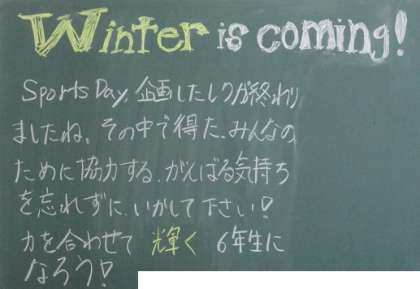 Winter is coming!
Sports Day、企画したレクが終わり
ましたね。その中で得た、みんなの
ために協力する、がんばる気持ち
を忘れずに、いかして下さい！
力を合わせて 輝く 6年生に
なろう！